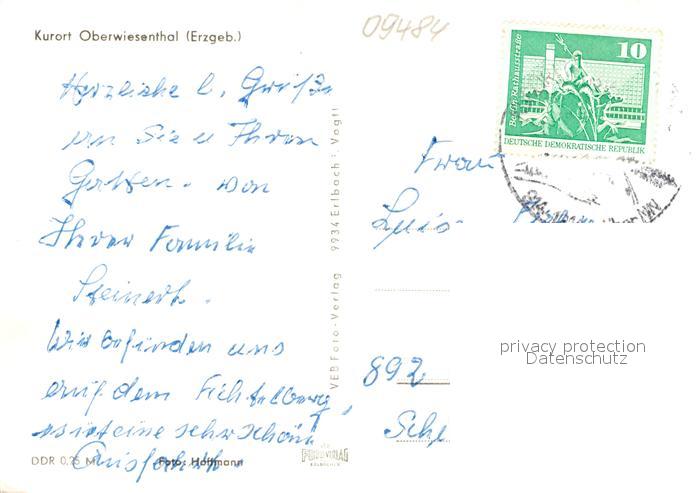 Kurort Oberwiesenthal (Erzgeb.)
09484
Herzliche l. Grüße
an Sie u Ihren
Gatten. von
Ihrer Familie
Steinert.
Wir befinden uns
auf dem Fichtelberg,
es ist eine sehr schöne
Ausfahrt.
DDR 0,25 M
Foto: Hoffmann
VEB Foto-Verlag 9934 Erlbach i. Vogtl
FOTO-VERLAG
ERLBACH
10
Berlin, Rathausstraße
DEUTSCHE DEMOKRATISCHE REPUBLIK
Frau
892
privacy protection
Datenschutz